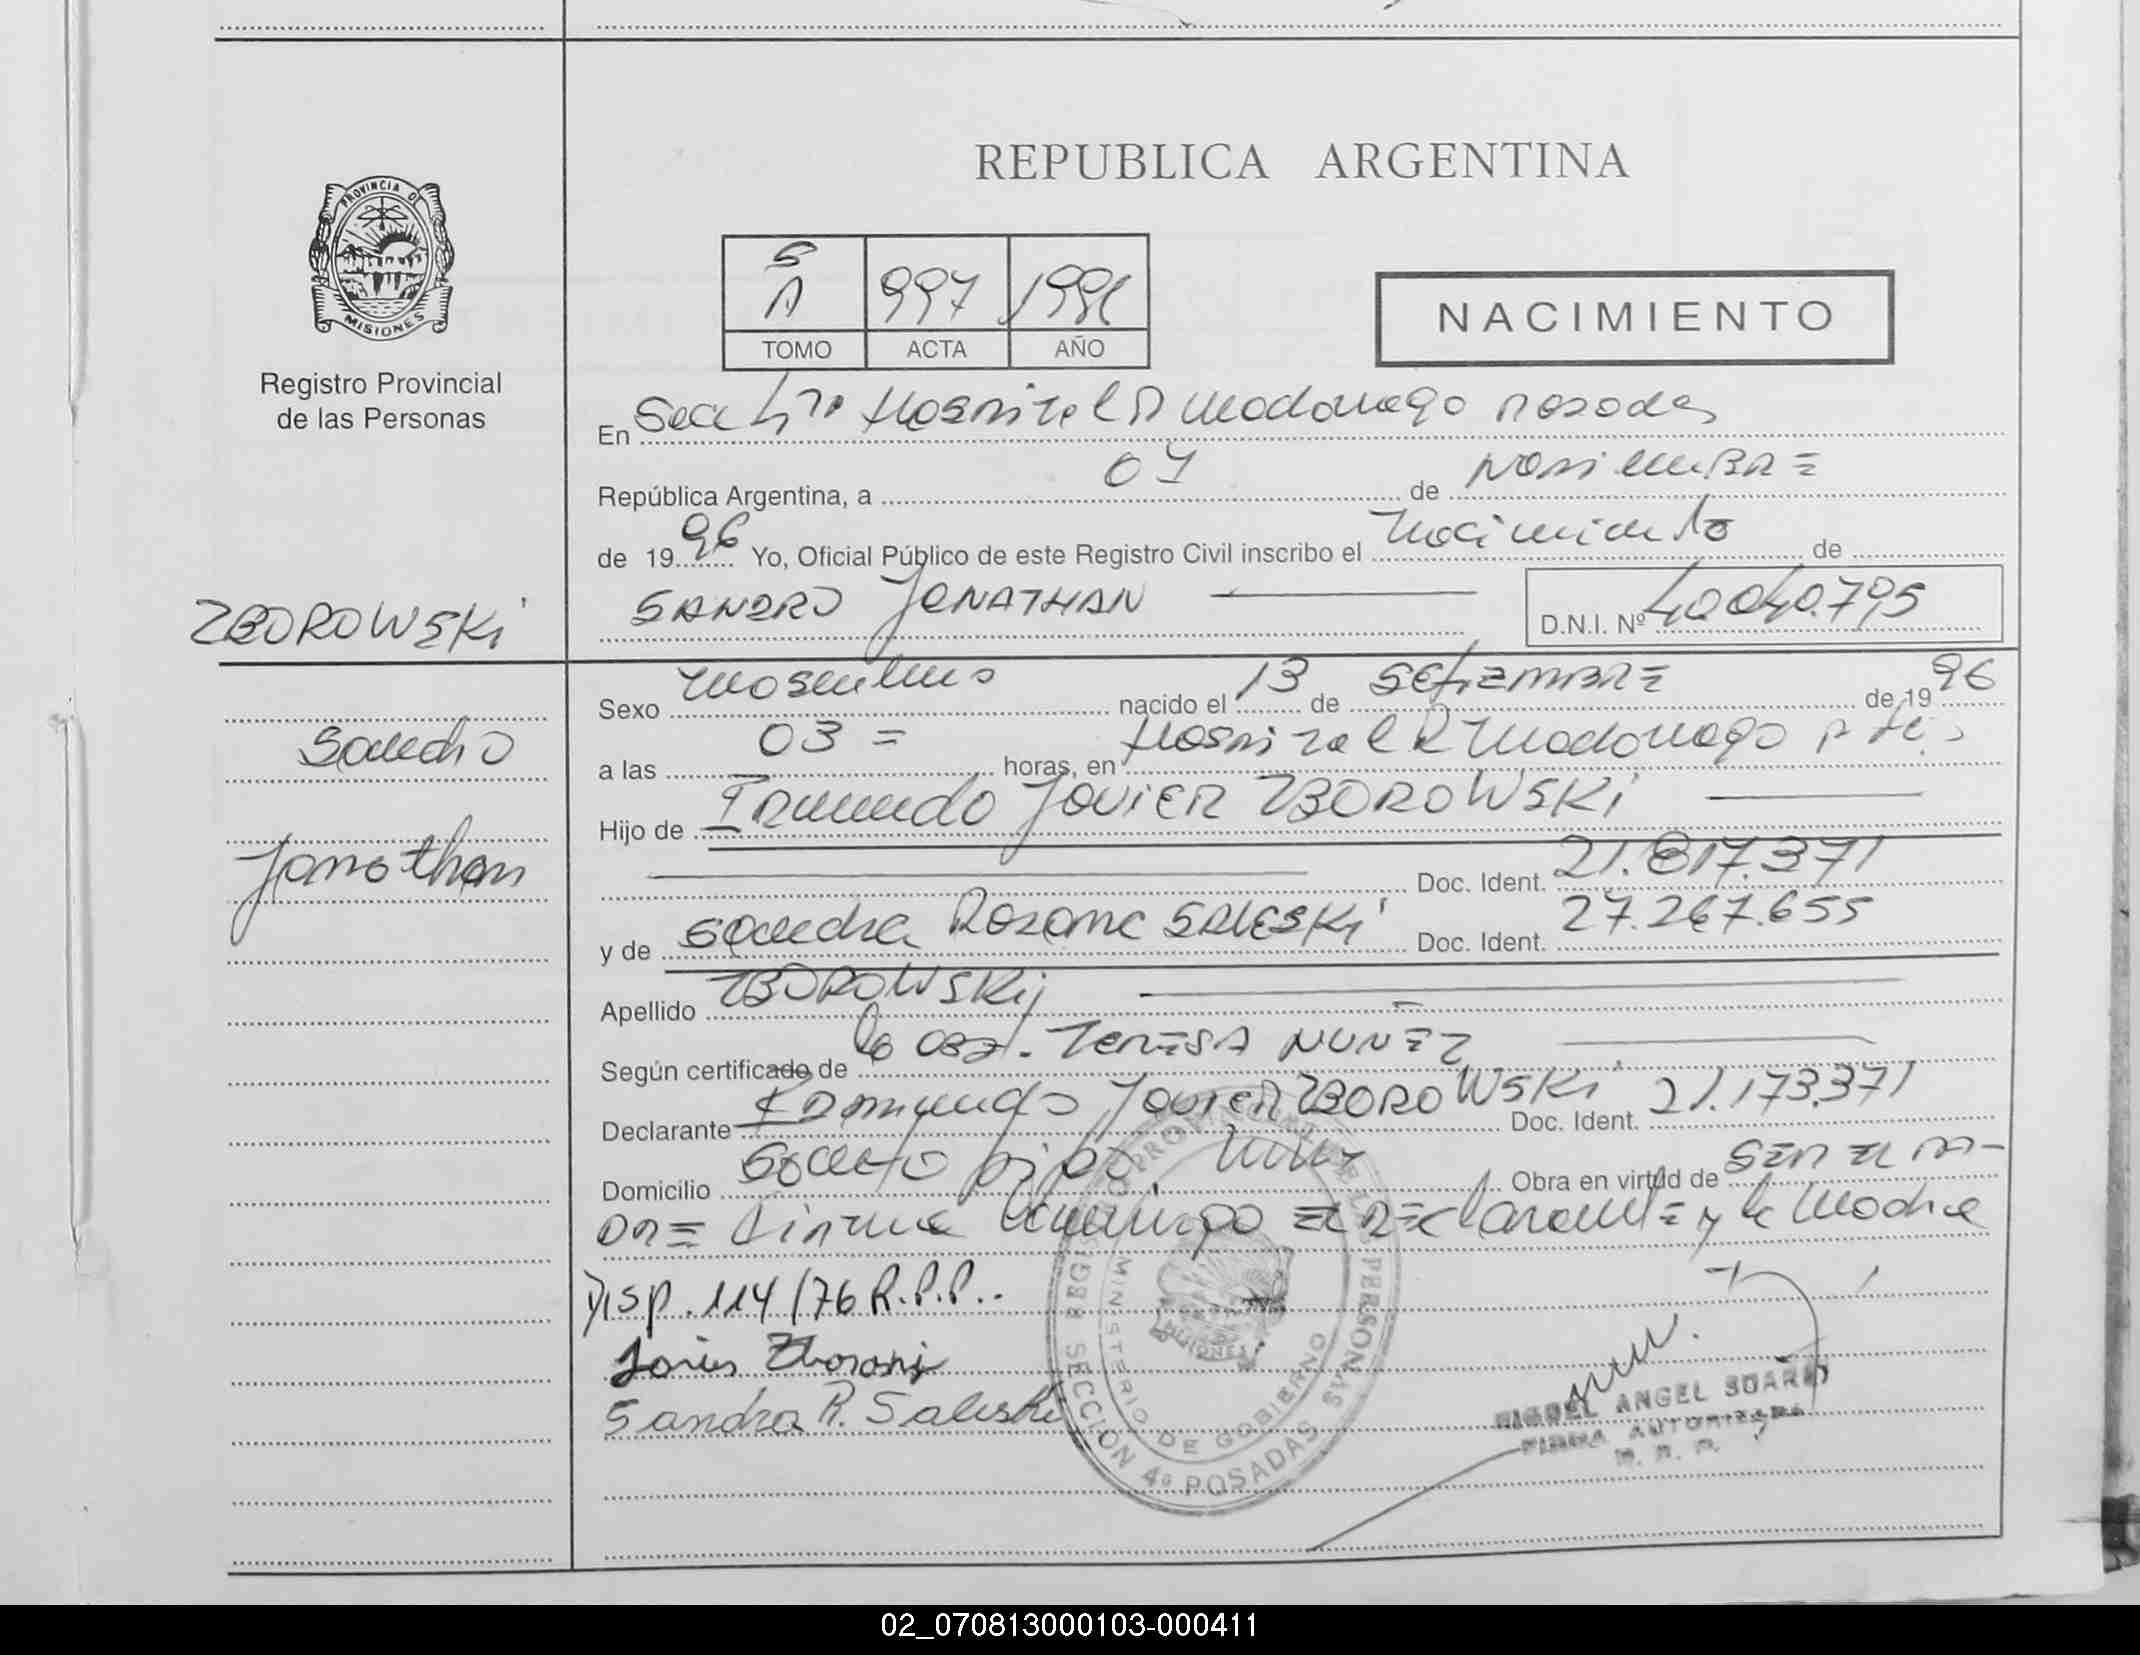 REPUBLICA ARGENTINA
PROVINCIA DE
MISIONES
Registro Provincial
de las Personas
5
A 997 1996
TOMO ACTA AÑO
NACIMIENTO
En Secc 4ta Hospital R Madariaga Posadas
República Argentina, a 07 de NOVIEMBRE
de 1996 Yo, Oficial Público de este Registro Civil inscribo el nacimiento de
ZBOROWSKI
SANDRO JONATHAN
D.N.I. Nº 40.040.795
Sandro
Jonathan
Sexo masculino nacido el 13 de SETIEMBRE de 1996
a las 03 = horas, en Hospital R Madariaga
Hijo de Javier ZBOROWSKI
Doc. Ident. 21.817.371
y de Sandra Rosana SALESKI Doc. Ident. 27.267.655
Apellido ZBOROWSKI
Según certificado de la Obst. TERESA NUÑEZ
Declarante Javier ZBOROWSKI Doc. Ident. 21.173.371
Domicilio Santo Obra en virtud de SER EL PA-
DRE Firma conmigo EL DEclarante y la Madre
Disp. 114/76 R.P.P..
Sandra R. Saleski
MIGUEL ANGEL SUAREZ
FIRMA AUTORIZADA
R. P. P.
REGISTRO PROVINCIAL DE LAS PERSONAS
MINISTERIO DE GOBIERNO
MISIONES
SECCION 4º POSADAS
02_070813000103-000411